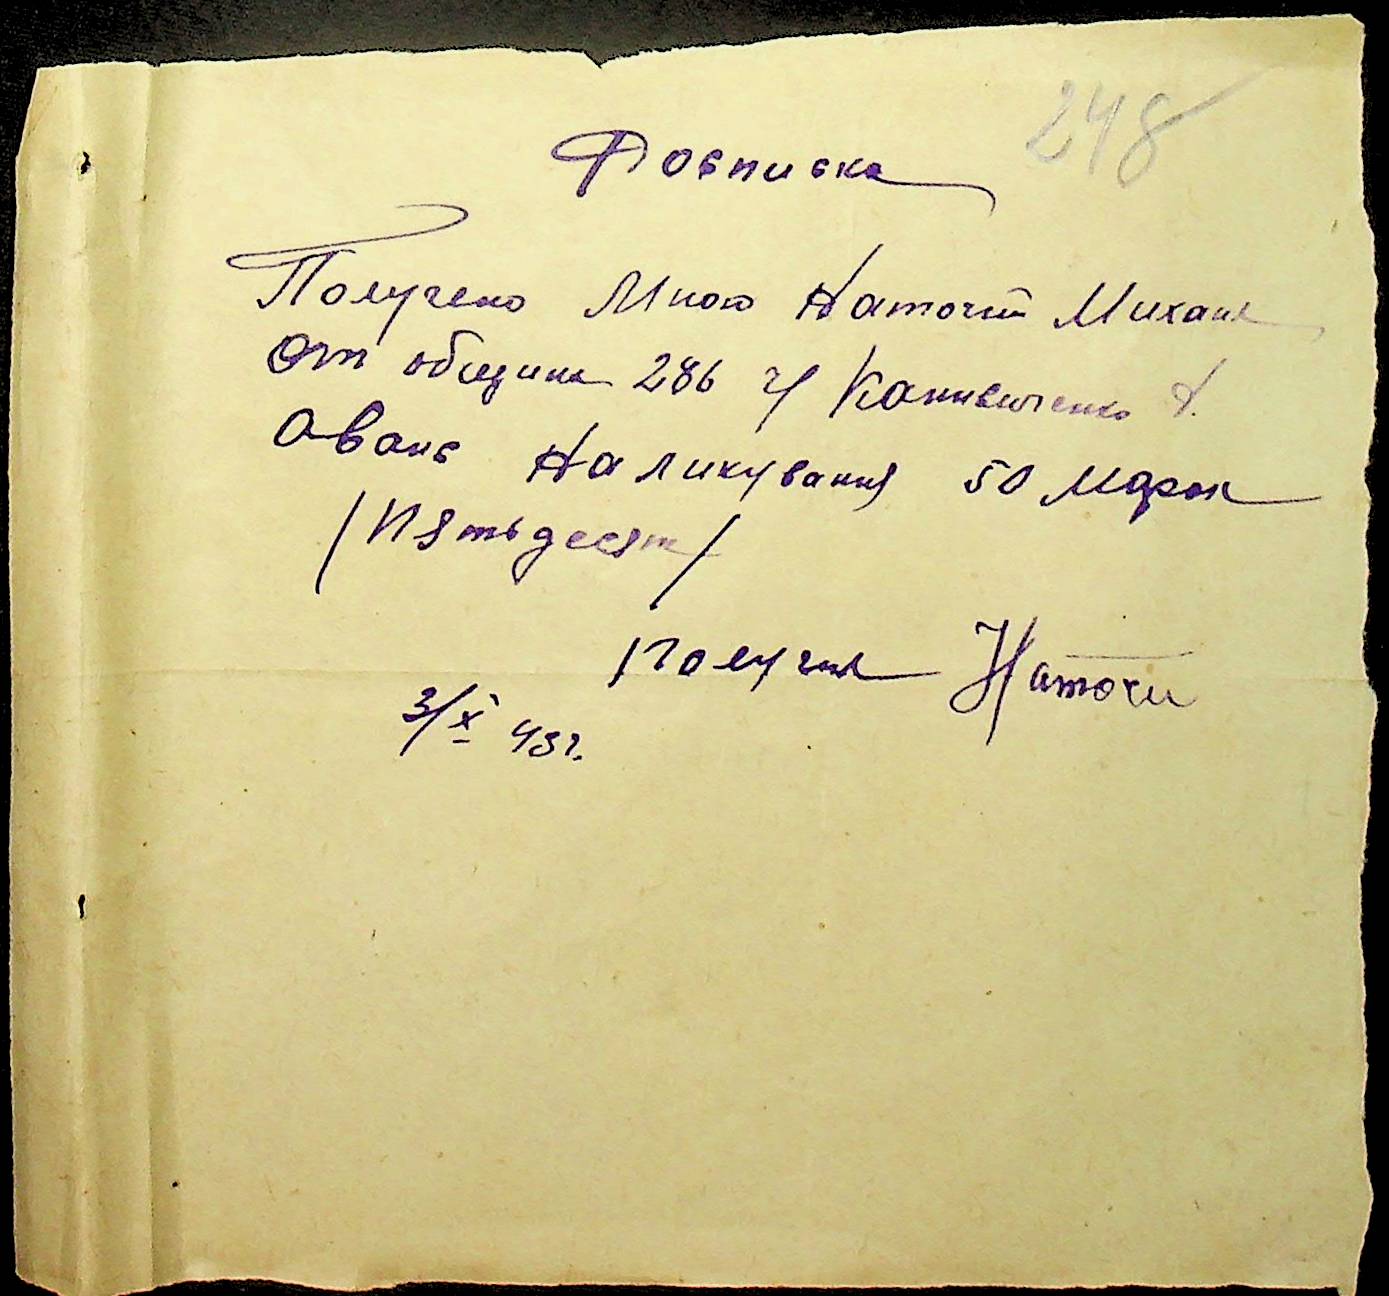 248
Росписка
Получено Мною Наточий Михаил
от общины 286 ч/
Аванс На ликування 50 Марок
/Пятьдесят/
Получил Наточи
3/X 43 г.